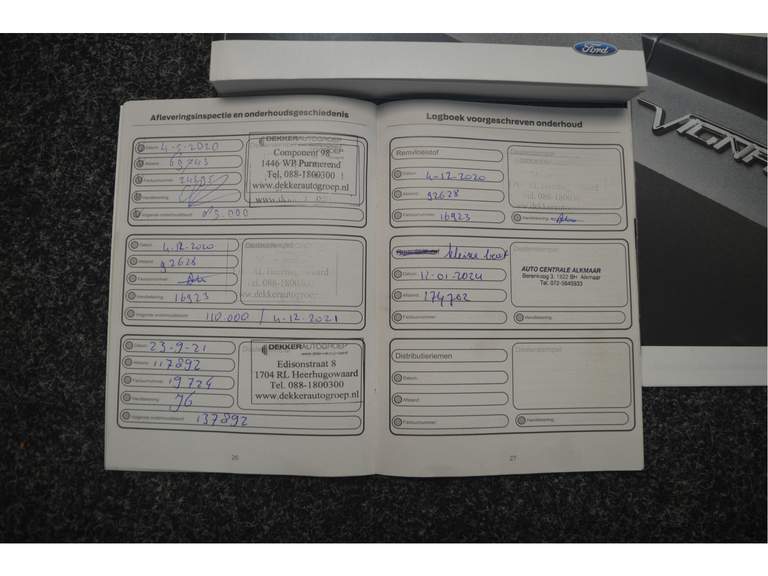 Ford
VIGNA
Afleveringsinspectie en onderhoudsgeschiedenis
Datum 4-5-2020
Afstand 69743
Factuurnummer
Handtekening
Volgende onderhoudsbeurt
DEKKERAUTOGROEP
Component 98
1446 WP Purmerend
Tel. 088-1800300
www.dekkerautogroep.nl
Datum 4-12-2020
Afstand 92628
Factuurnummer
Handtekening 16923
Volgende onderhoudsbeurt 110.000 / 4-12-2021
DEKKER
RL Heerhugowaard
Datum 23-9-21
Afstand 117892
Factuurnummer 19724
Handtekening
Volgende onderhoudsbeurt 137892
DEKKERAUTOGROEP
Edisonstraat 8
1704 RL Heerhugowaard
Tel. 088-1800300
www.dekkerautogroep.nl
26
Logboek voorgeschreven onderhoud
Remvloeistof
Datum 4-12-2020
Afstand 92628
Factuurnummer 16923
Dealerstempel
Handtekening
kleine beurt
Datum 12-01-2024
Afstand 174702
Factuurnummer
AUTO CENTRALE ALKMAAR
Berenkoog 3, 1822 BH Alkmaar
Tel. 072-5645933
Handtekening
Distributieriemen
Datum
Afstand
Factuurnummer
Dealerstempel
Handtekening
27